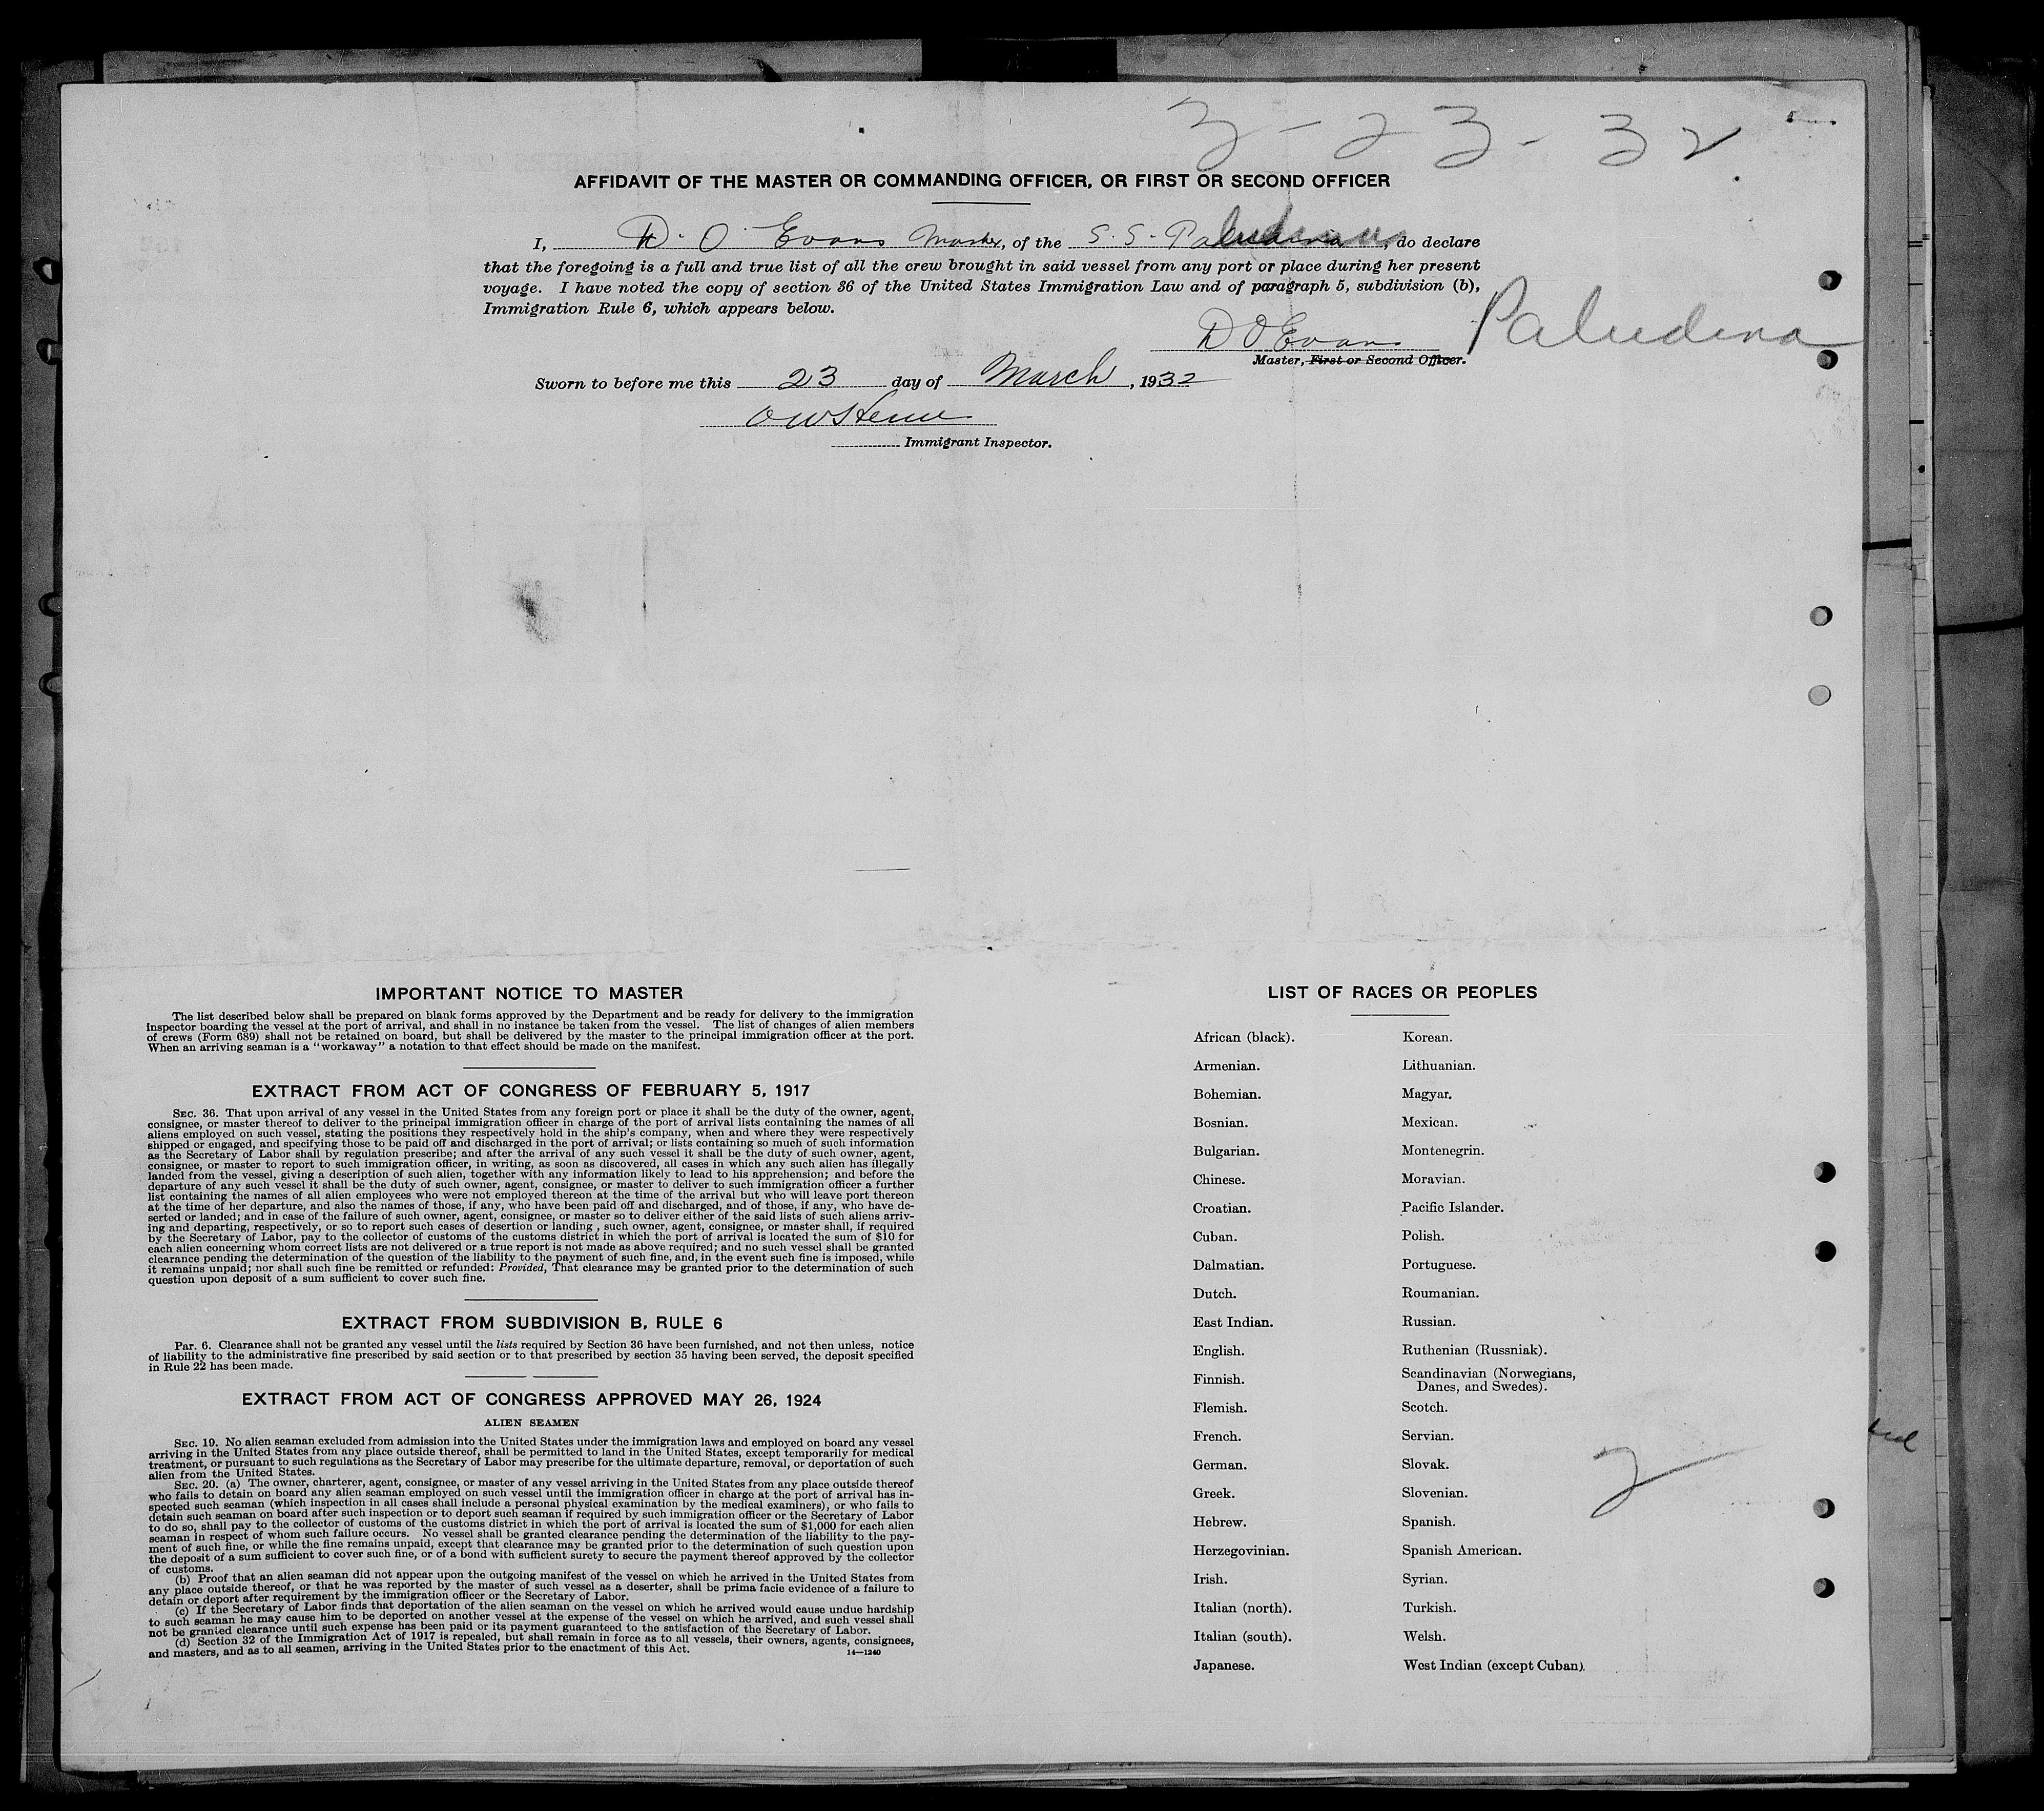 3-23-32
AFFIDAVIT OF THE MASTER OR COMMANDING OFFICER, OR FIRST OR SECOND OFFICER
I, D. O. Evans Master, of the S.S. Paludina, do declare
that the foregoing is a full and true list of all the crew brought in said vessel from any port or place during her present
voyage. I have noted the copy of section 36 of the United States Immigration Law and of paragraph 5, subdivision (b),
Immigration Rule 6, which appears below.
D O Evans
Paludina
Master, First or Second Officer.
Sworn to before me this 23 day of March, 1932
Immigrant Inspector.
IMPORTANT NOTICE TO MASTER
The list described below shall be prepared on blank forms approved by the Department and be ready for delivery to the immigration
inspector boarding the vessel at the port of arrival, and shall in no instance be taken from the vessel. The list of changes of alien members
of crews (Form 689) shall not be retained on board, but shall be delivered by the master to the principal immigration officer at the port.
When an arriving seaman is a "workaway" a notation to that effect should be made on the manifest.
EXTRACT FROM ACT OF CONGRESS OF FEBRUARY 5, 1917
SEC. 36. That upon arrival of any vessel in the United States from any foreign port or place it shall be the duty of the owner, agent,
consignee, or master thereof to deliver to the principal immigration officer in charge of the port of arrival lists containing the names of all
aliens employed on such vessel, stating the positions they respectively hold in the ship's company, when and where they were respectively
shipped or engaged, and specifying those to be paid off and discharged in the port of arrival; or lists containing so much of such information
as the Secretary of Labor shall by regulation prescribe; and after the arrival of any such vessel it shall be the duty of such owner, agent,
consignee, or master to report to such immigration officer, in writing, as soon as discovered, all cases in which any such alien has illegally
landed from the vessel, giving a description of such alien, together with any information likely to lead to his apprehension; and before the
departure of any such vessel it shall be the duty of such owner, agent, consignee, or master to deliver to such immigration officer a further
list containing the names of all alien employees who were not employed thereon at the time of the arrival but who will leave port thereon
at the time of her departure, and also the names of those, if any, who have been paid off and discharged, and of those, if any, who have de-
serted or landed; and in case of the failure of such owner, agent, consignee, or master so to deliver either of the said lists of such aliens arriv-
ing and departing, respectively, or so to report such cases of desertion or landing , such owner, agent, consignee, or master shall, if required
by the Secretary of Labor, pay to the collector of customs of the customs district in which the port of arrival is located the sum of $10 for
each alien concerning whom correct lists are not delivered or a true report is not made as above required; and no such vessel shall be granted
clearance pending the determination of the question of the liability to the payment of such fine, and, in the event such fine is imposed, while
it remains unpaid; nor shall such fine be remitted or refunded: Provided, That clearance may be granted prior to the determination of such
question upon deposit of a sum sufficient to cover such fine.
EXTRACT FROM SUBDIVISION B, RULE 6
PAR. 6. Clearance shall not be granted any vessel until the lists required by Section 36 have been furnished, and not then unless, notice
of liability to the administrative fine prescribed by said section or to that prescribed by section 35 having been served, the deposit specified
in Rule 22 has been made.
EXTRACT FROM ACT OF CONGRESS APPROVED MAY 26, 1924
ALIEN SEAMEN
SEC. 19. No alien seaman excluded from admission into the United States under the immigration laws and employed on board any vessel
arriving in the United States from any place outside thereof, shall be permitted to land in the United States, except temporarily for medical
treatment, or pursuant to such regulations as the Secretary of Labor may prescribe for the ultimate departure, removal, or deportation of such
alien from the United States.
SEC. 20. (a) The owner, charterer, agent, consignee, or master of any vessel arriving in the United States from any place outside thereof
who fails to detain on board any alien seaman employed on such vessel until the immigration officer in charge at the port of arrival has in-
spected such seaman (which inspection in all cases shall include a personal physical examination by the medical examiners), or who fails to
detain such seaman on board after such inspection or to deport such seaman if required by such immigration officer or the Secretary of Labor
to do so, shall pay to the collector of customs of the customs district in which the port of arrival is located the sum of $1,000 for each alien
seaman in respect of whom such failure occurs. No vessel shall be granted clearance pending the determination of the liability to the pay-
ment of such fine, or while the fine remains unpaid, except that clearance may be granted prior to the determination of such question upon
the deposit of a sum sufficient to cover such fine, or of a bond with sufficient surety to secure the payment thereof approved by the collector
of customs.
(b) Proof that an alien seaman did not appear upon the outgoing manifest of the vessel on which he arrived in the United States from
any place outside thereof, or that he was reported by the master of such vessel as a deserter, shall be prima facie evidence of a failure to
detain or deport after requirement by the immigration officer or the Secretary of Labor.
(c) If the Secretary of Labor finds that deportation of the alien seaman on the vessel on which he arrived would cause undue hardship
to such seaman he may cause him to be deported on another vessel at the expense of the vessel on which he arrived, and such vessel shall
not be granted clearance until such expense has been paid or its payment guaranteed to the satisfaction of the Secretary of Labor.
(d) Section 32 of the Immigration Act of 1917 is repealed, but shall remain in force as to all vessels, their owners, agents, consignees,
and masters, and as to all seamen, arriving in the United States prior to the enactment of this Act.
14—1240
LIST OF RACES OR PEOPLES
African (black).
Armenian.
Bohemian.
Bosnian.
Bulgarian.
Chinese.
Croatian.
Cuban.
Dalmatian.
Dutch.
East Indian.
English.
Finnish.
Flemish.
French.
German.
Greek.
Hebrew.
Herzegovinian.
Irish.
Italian (north).
Italian (south).
Japanese.
Korean.
Lithuanian.
Magyar.
Mexican.
Montenegrin.
Moravian.
Pacific Islander.
Polish.
Portuguese.
Roumanian.
Russian.
Ruthenian (Russniak).
Scandinavian (Norwegians,
Danes, and Swedes).
Scotch.
Servian.
Slovak.
Slovenian.
Spanish.
Spanish American.
Syrian.
Turkish.
Welsh.
West Indian (except Cuban).
2